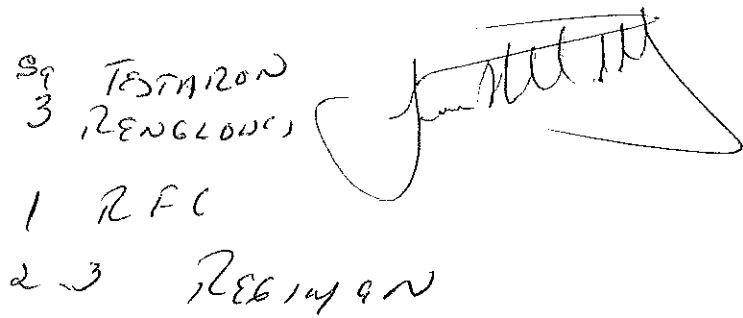 Se TESTARON
3 RENGLONES
1 RFC
2 3 REGIMEN